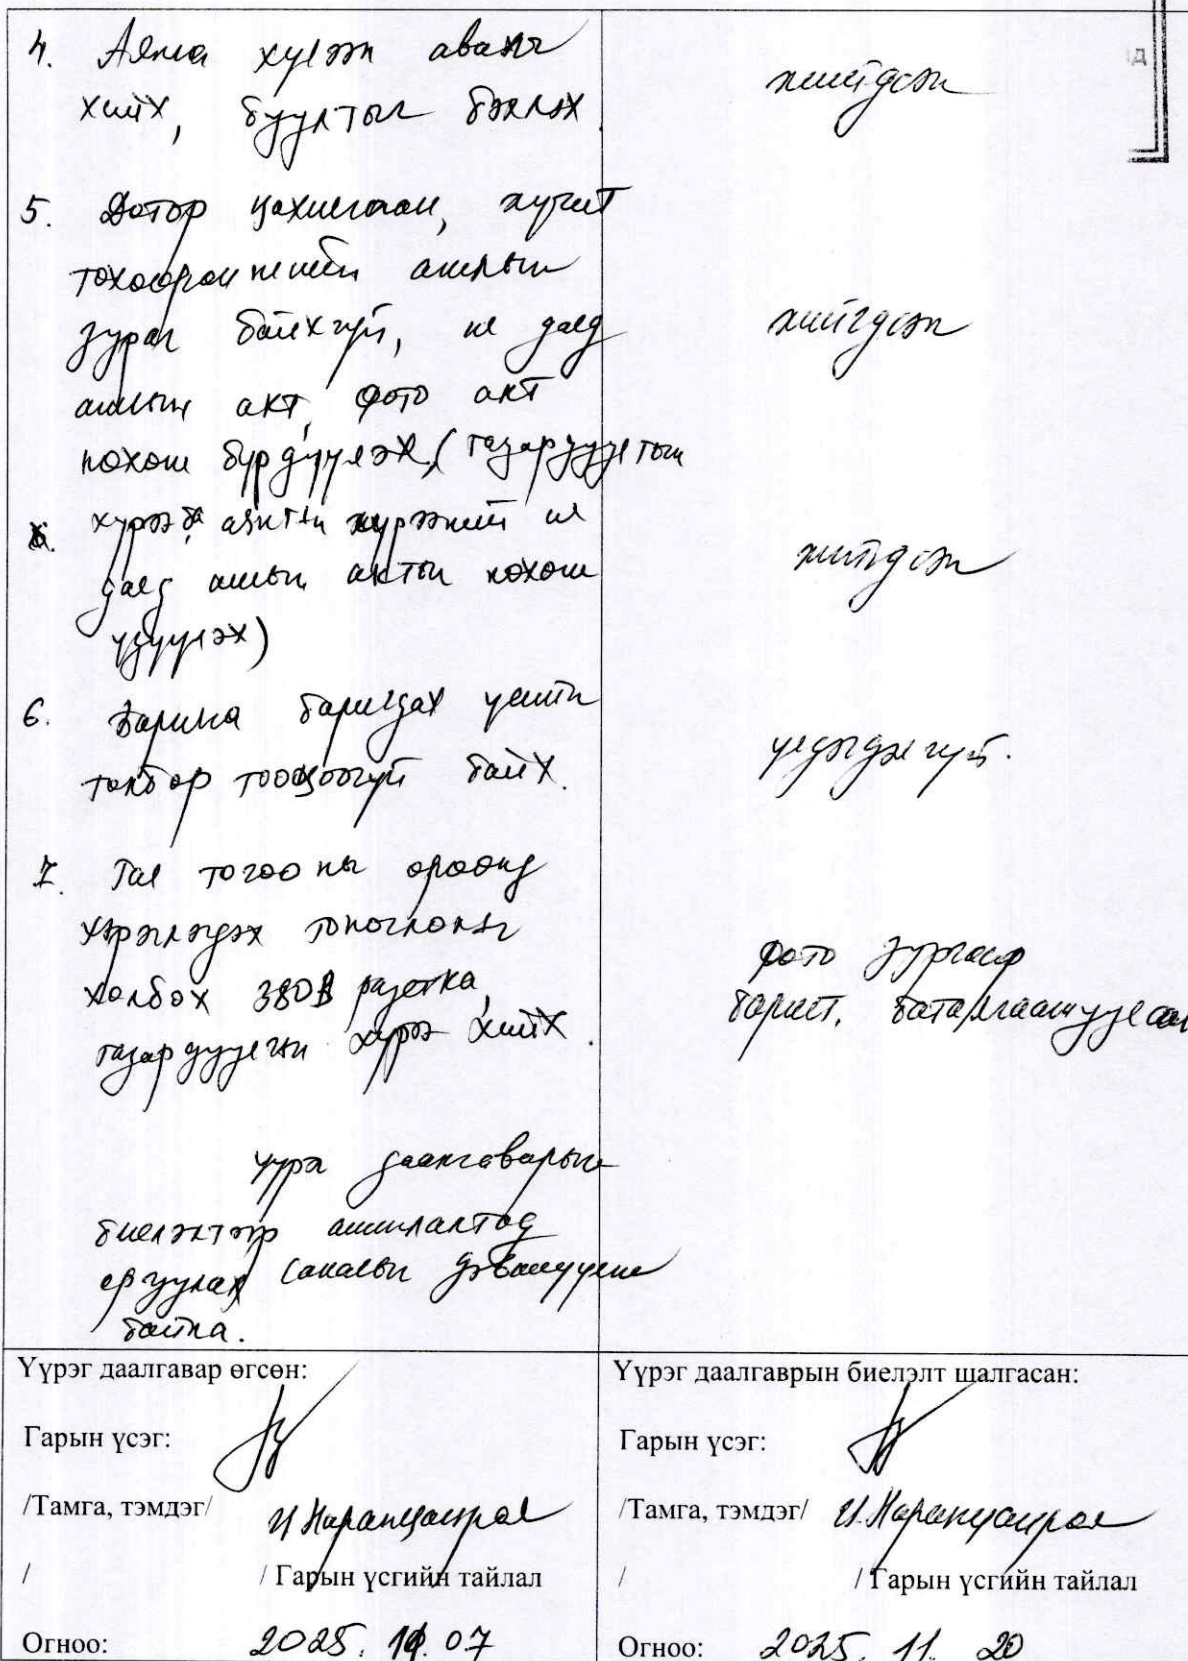 4. Аянга хүлээн авагч
хийх, буултыг бэхлэх.
хийгдсэн
5. Дотор цахилгаан, хүчит
тоноглолын ажлын
зураг байхгүй, ил далд
хийгдсэн
ажлын акт, фото акт
нөхөж бүрдүүлэх, (газардуулгын
хүрээ, аянгын хүрээний ил
далд ажлын актын нөхөж
хийгдсэн
үзүүлэх)
6. Барилга баригдах үеийн
төлбөр тооцоогүй байх.
үлдэгдэлгүй.
7. Гал тогооны өрөөнд
хэрэглэгдэх тоноглолыг
холбох 380В розетка,
газардуулгын хүрээ хийх.
фото зургаар
баримт. баталгаажуулсан
Үүрэг даалгаварын
биелэлтээр ашиглалтад
оруулах саналыг дэвшүүлж
байна.
Үүрэг даалгавар өгсөн:
Гарын үсэг:
/Тамга, тэмдэг/ И Наранцацрал
/ / Гарын үсгийн тайлал
Огноо: 2025. 10. 07
Үүрэг даалгаврын биелэлт шалгасан:
Гарын үсэг:
/Тамга, тэмдэг/ И. Наранцацрал
/ / Гарын үсгийн тайлал
Огноо: 2025. 11. 20